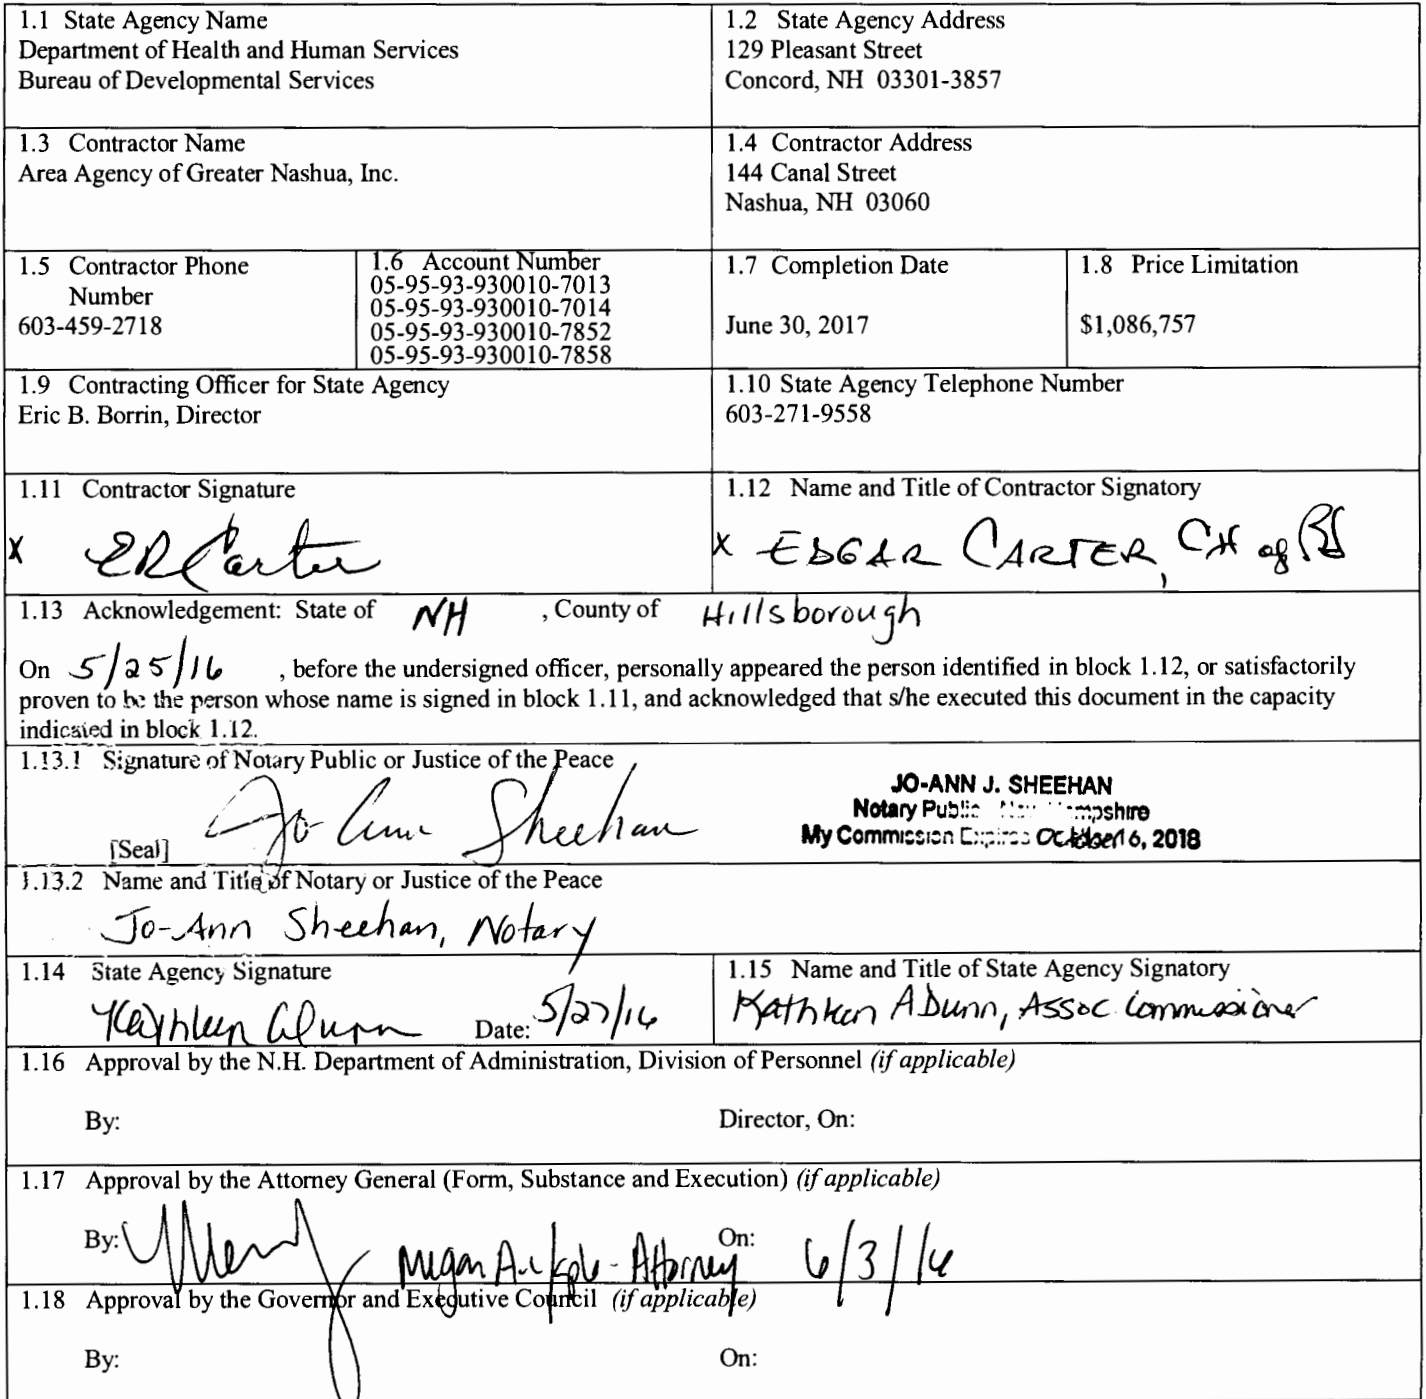 1.1 State Agency Name
Department of Health and Human Services
Bureau of Developmental Services
1.2 State Agency Address
129 Pleasant Street
Concord, NH 03301-3857
1.3 Contractor Name
Area Agency of Greater Nashua, Inc.
1.4 Contractor Address
144 Canal Street
Nashua, NH 03060
1.5 Contractor Phone
Number
603-459-2718
1.6 Account Number
05-95-93-930010-7013
05-95-93-930010-7014
05-95-93-930010-7852
05-95-93-930010-7858
1.7 Completion Date
June 30, 2017
1.8 Price Limitation
$1,086,757
1.9 Contracting Officer for State Agency
Eric B. Borrin, Director
1.10 State Agency Telephone Number
603-271-9558
1.11 Contractor Signature
X ER Carter
1.12 Name and Title of Contractor Signatory
X EDGAR CARTER, CH of BD
1.13 Acknowledgement: State of NH , County of Hillsborough
On 5/25/16 , before the undersigned officer, personally appeared the person identified in block 1.12, or satisfactorily
proven to be the person whose name is signed in block 1.11, and acknowledged that s/he executed this document in the capacity
indicated in block 1.12.
1.13.1 Signature of Notary Public or Justice of the Peace
[Seal] Jo Ann Sheehan
JO-ANN J. SHEEHAN
Notary Public - New Hampshire
My Commission Expires October 16, 2018
1.13.2 Name and Title of Notary or Justice of the Peace
Jo-Ann Sheehan, Notary
1.14 State Agency Signature
Kathleen A Dunn Date: 5/27/16
1.15 Name and Title of State Agency Signatory
Kathleen A Dunn, Assoc. Commissioner
1.16 Approval by the N.H. Department of Administration, Division of Personnel (if applicable)
By: Director, On:
1.17 Approval by the Attorney General (Form, Substance and Execution) (if applicable)
By: Megan - Attorney On: 6/3/16
1.18 Approval by the Governor and Executive Council (if applicable)
By: On: